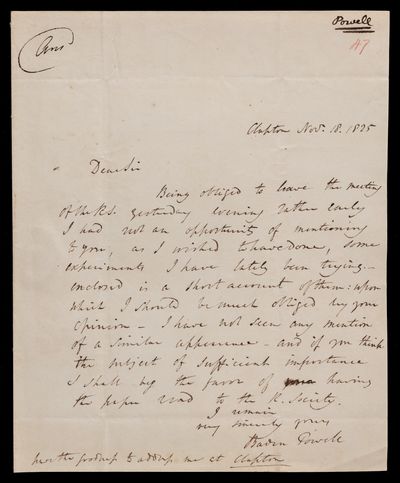 Powell
47
Ans
Clapton Nov. 18. 1825
Dear Sir
Being obliged to leave the meeting
of the R.S. yesterday evening rather early
I had not an opportunity of mentioning
to you, as I wished to have done, some
experiments I have lately been trying.—
enclosed is a short account of them: upon
which I should be much obliged by your
opinion — I have not seen any mention
of a similar appearance — and if you think
the subject of sufficient importance
I shall beg the favor of having
the paper read to the R. Society.
I remain
very sincerely yours
Baden Powell
have the goodness to address me at Clapton